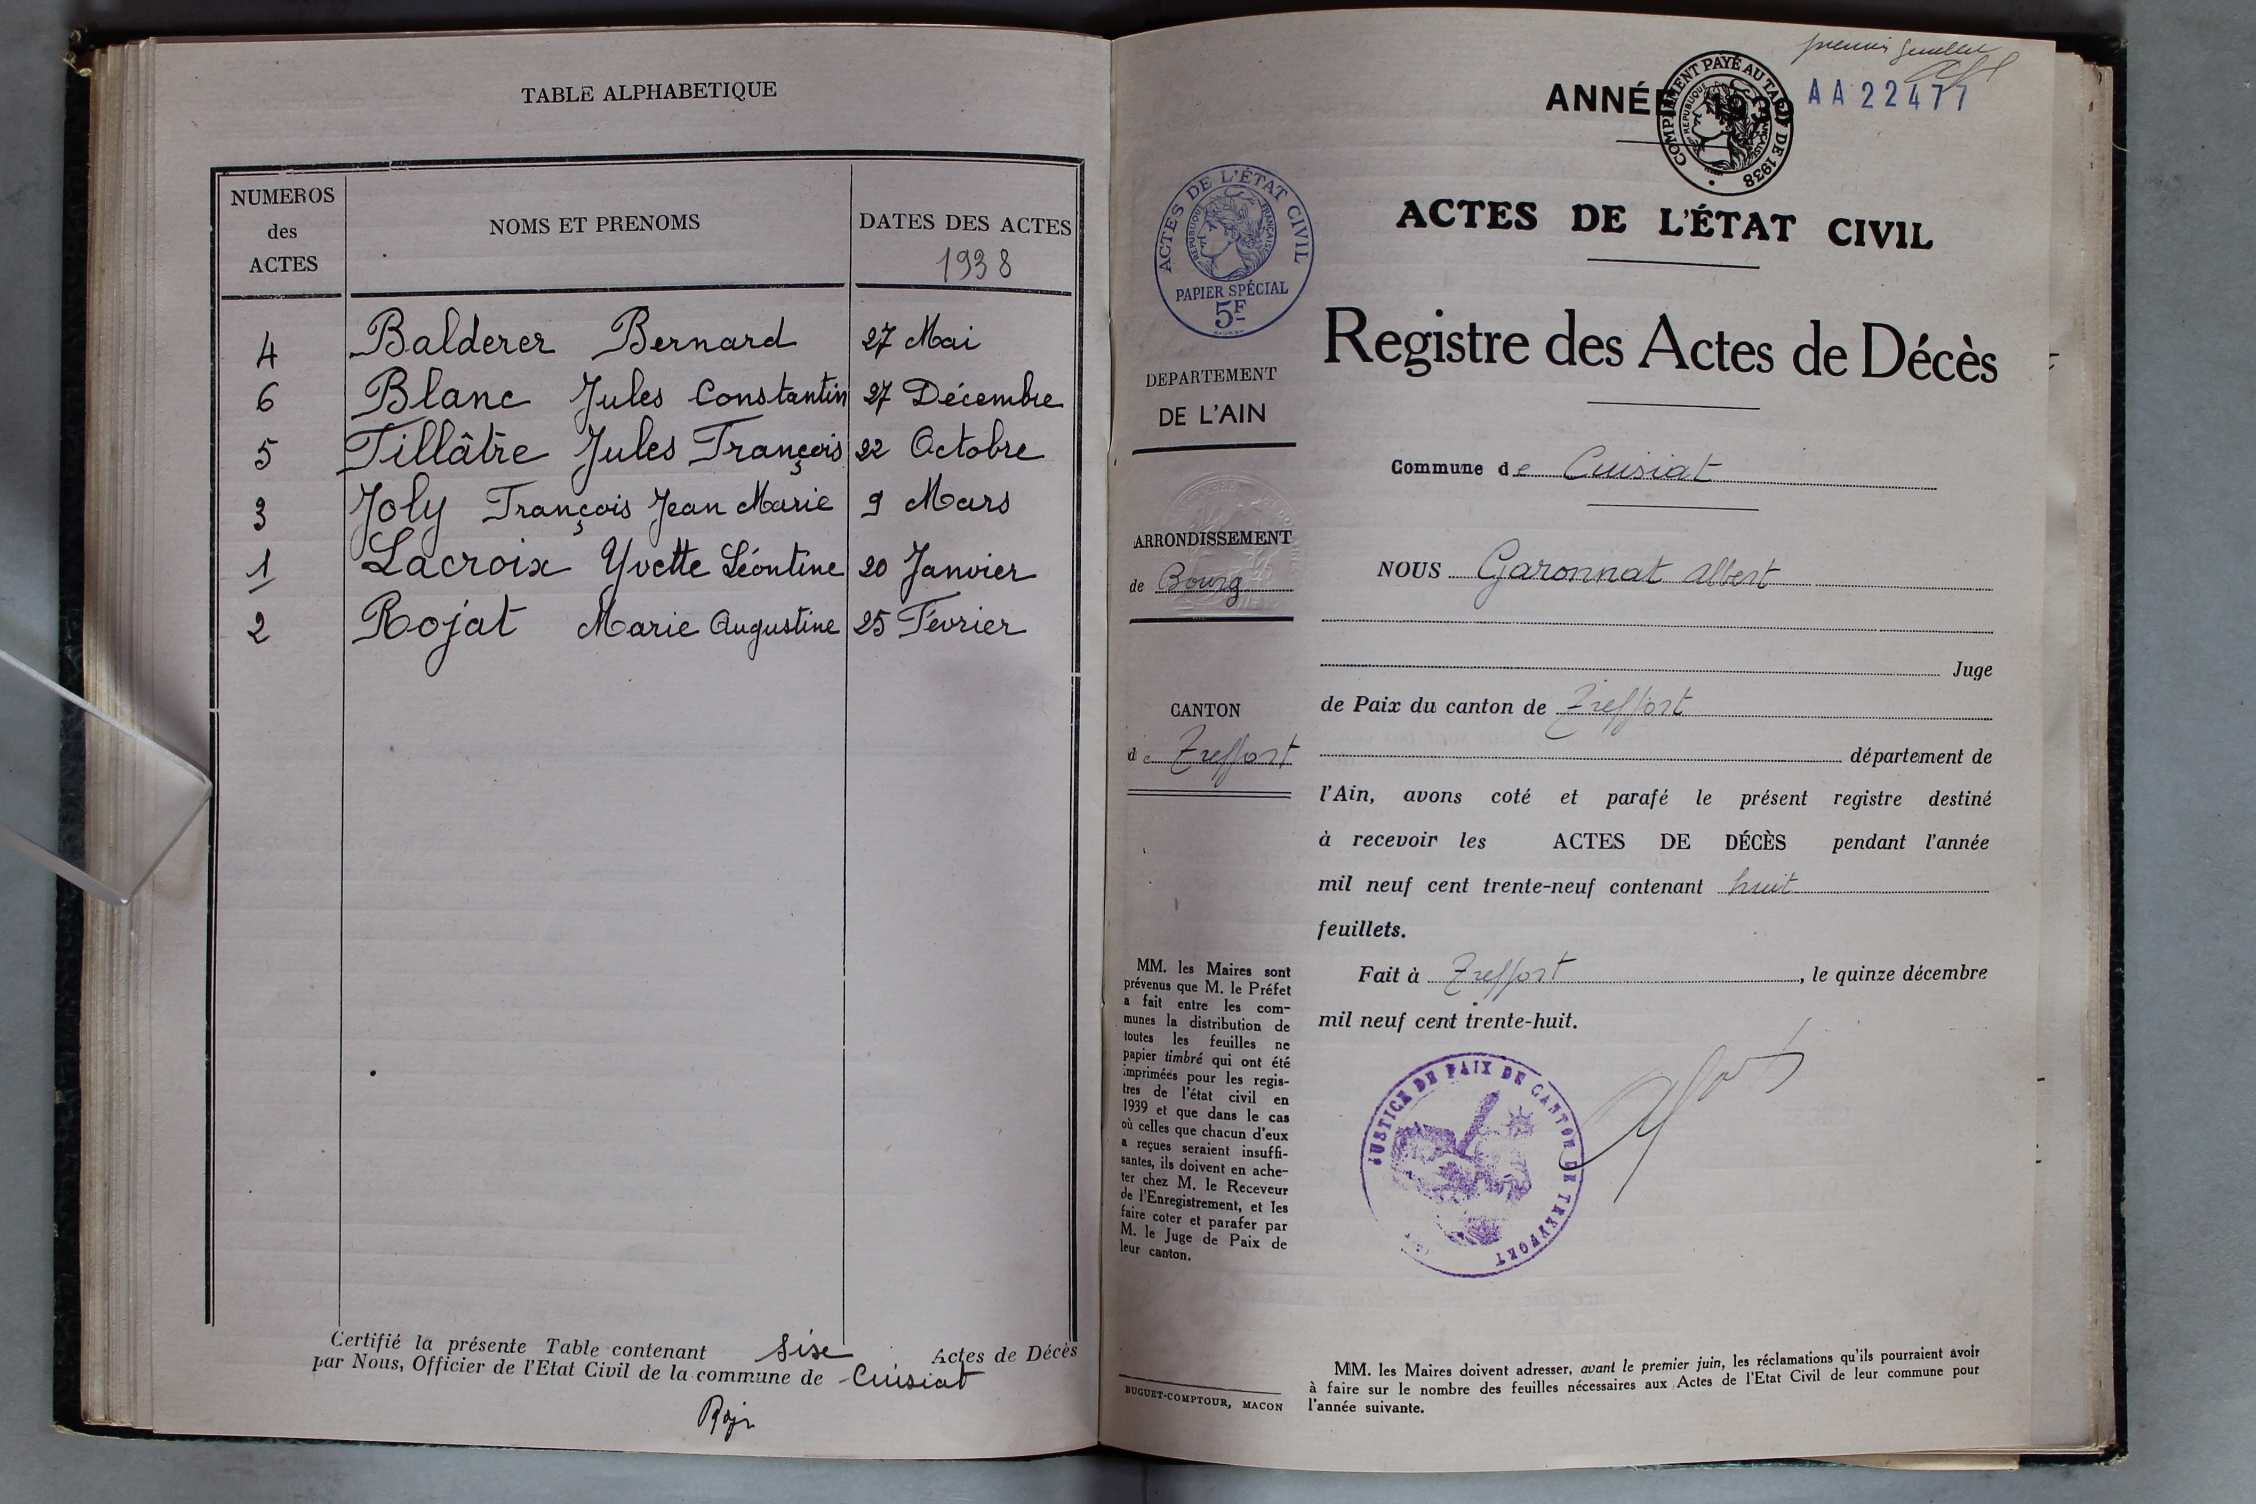 TABLE ALPHABETIQUE
NUMEROS
des
ACTES
NOMS ET PRENOMS
DATES DES ACTES
1938
4 Balderer Bernard 27 Mai
6 Blanc Jules Constantin 27 Décembre
5 Fillâtre Jules François 22 Octobre
3 Joly François Jean Marie 9 Mars
1 Lacroix Yvette Léontine 20 Janvier
2 Rojat Marie Augustine 25 Février
Certifié la présente Table contenant sise Actes de Décès
par Nous, Officier de l'Etat Civil de la commune de Cuisiat
premier feuillet
ANNÉE 1939
COMPLEMENT PAYÉ AU TARIF DE 1938
REPUBLIQUE FRANÇAISE
AA22477
ACTES DE L'ÉTAT CIVIL
REPUBLIQUE FRANÇAISE
PAPIER SPÉCIAL
5F
DEPARTEMENT
DE L'AIN
ARRONDISSEMENT
de Bourg
CANTON
de Treffort
MM. les Maires sont
prévenus que M. le Préfet
a fait entre les com-
munes la distribution de
toutes les feuilles ne
papier timbré qui ont été
imprimées pour les regis-
tres de l'état civil en
1939 et que dans le cas
où celles que chacun d'eux
a reçues seraient insuffi-
santes, ils doivent en ache-
ter chez M. le Receveur
de l'Enregistrement, et les
faire coter et parafer par
M. le Juge de Paix de
leur canton.
BUGUET-COMPTOUR, MACON
ACTES DE L'ÉTAT CIVIL
Registre des Actes de Décès
Commune de Cuisiat
NOUS Garonnat Albert
Juge
de Paix du canton de Treffort
département de
l'Ain, avons coté et parafé le présent registre destiné
à recevoir les ACTES DE DÉCÈS pendant l'année
mil neuf cent trente-neuf contenant huit
feuillets.
Fait à Treffort, le quinze décembre
mil neuf cent trente-huit.
JUSTICE DE PAIX DE CANTON DE TREFFORT
MM. les Maires doivent adresser, avant le premier juin, les réclamations qu'ils pourraient avoir
à faire sur le nombre des feuilles nécessaires aux Actes de l'Etat Civil de leur commune pour
l'année suivante.